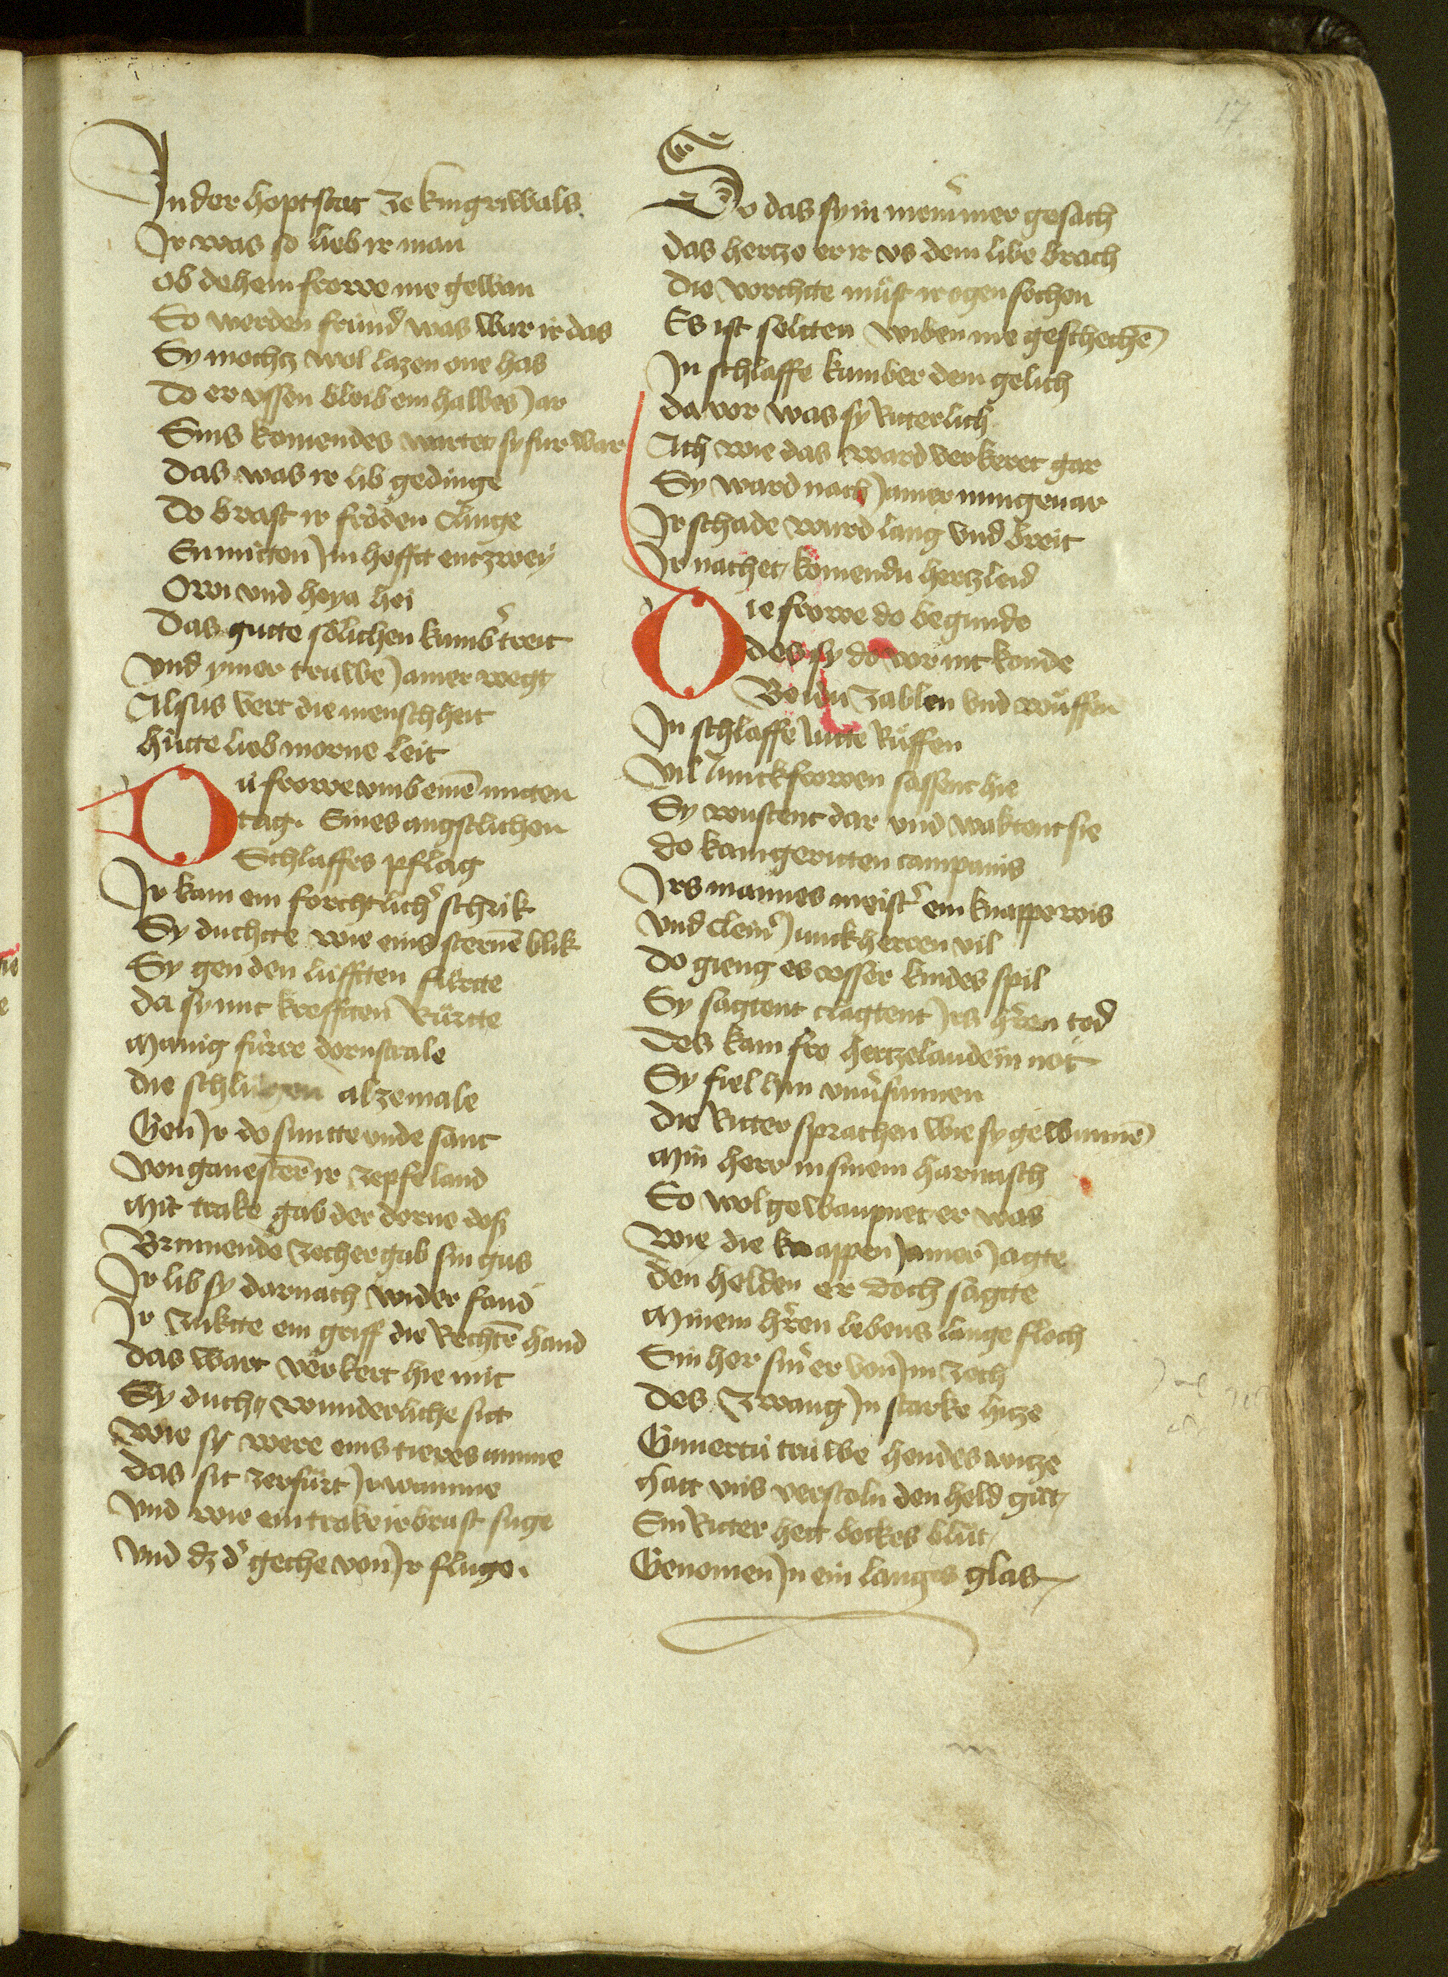 17
In der hoptstat ze kingriwals
Ir was so lieb ir man
ob dehein frowe nie gewan
So werden fründ was war ir das
Sy mochtz wol lazen one has
do er vssen bleib ein halbes Jar
Sins komendes wartet sy fur war
das was ir lib gedinge
do brast ir fröden clinge
En mitten Im hefft entzwey
Owi vnd heya hei
das gutte sölichen kumb̾ treit
vnd ymer truwe Jamer wegt
Alsus vert die menschheit
hütte lieb morne leit
Dü frowe vmb einē mitten
tag. Eines angstlichen
Schlaffes pflag
Ir kam ein forchtlich̾ schrik
Sy duchtte wie eins sternē blik
Sy gen den lüfften fürtte
da sy mit krefften Rürtte
manig fürre dornstrale
die schlugen alzemale
Gen Ir do suntte vnde sant
von ganesterē ir zepfe land
mit trake gab der dorne dosz
Brinnende zecher gab sin gus
Ir lib sy darnach wider fand
Ir zuktte ein griff die Rechtē hand
das wart verkert hie mit
Sy ducht wunderliche sitt
wie sy were eins tieres amme
das sit zerfürt Ir wamme
vnd wie ein trake ir brast suge
vnd dz d̾ geche von Ir fluge.
So das sy in niem̄mer gesach
das hertze er ir vs dem libe brach
die vorchtte müst ir ogen sechen
Es ist seltten wiben nie geschechē
In schlaffe kumber dem gelich
da vor was sy Ritterlich
Ach wie das ward verkeret gar
Sy ward nach Jamer nungevar
Ir schade ward lang vnd breit
Ir nachet komendu hertzleid
Die frowe do begunde
des sy do vor nit konde
Beidu zablen vnd wüffen
In schlaffe lutte Rüffen
vil Junckfrowen sassent hie
Sy wustent dar vnd waktent sie
do kam geritten campanis
Irs mannes meist̾ ein knappe wis
vnd clein̾ Junckherren vil
do gieng es vsser kindes spil
Sy sagtent clagtent Irs h̾ren tod
des kam fro hertzelaude in not
Sy fiel hin vnu̾sunnen
die Ritter sprachen wie sy gewunnē
min herr in sinem harnasch
So wol gewaupnet er was
wie die knappen Jamer Jagte
den helden er doch sagtte
minem h̾ren lebens lange floch
Sin her sin̾ er von Im zoch
des zwang In starke hitze
Gunertu truwe hendes witze
hatt vns verstoln den held güt
Ein Ritter hett bockes blüt
Genomen In ein langes glas